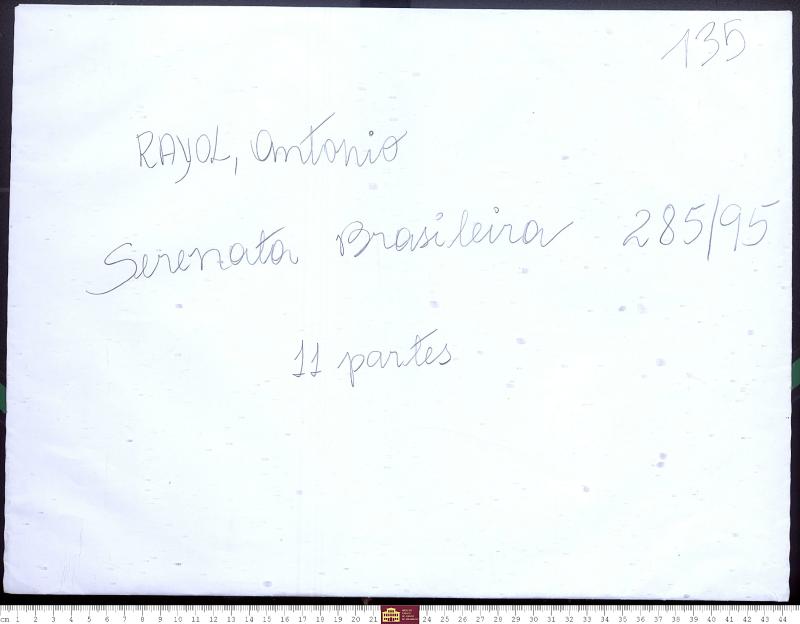 135
RAYOL, Antonio
Serenata Brasileira 285/95
11 partes
cm 1 2 3 4 5 6 7 8 9 10 11 12 13 14 15 16 17 18 19 20 21 24 25 26 27 28 29 30 31 32 33 34 35 36 37 38 39 40 41 42 43 44